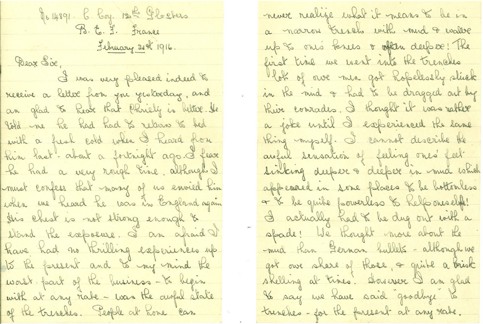 14891. C Coy. 12th Glosters
B. E. F. France
February 20th 1916.
Dear Sir,
I was very pleased indeed to
receive a letter from you yesterday, and
am glad to hear that is better. He
told me he had had to return to bed
with a fresh cold when I heard from
him last about a fortnight ago. I fear
he had a very rough time, although I
must confess that many of us envied him
when we heard he was in England again
His chest is not strong enough to
stand the exposure. I am afraid I
have had no thrilling experiences up
to the present and to my mind the
worst part of the business - to begin
with at any rate - was the awful state
of the trenches. People at home can
never realize what it means to be in
a narrow trench with mud & water
up to ones knees & often deeper! The
first time we went into the trenches
lots of our men got hopelessly stuck
in the mud & had to be dragged out by
their comrades. I thought it was rather
a joke until I experienced the same
thing myself. I cannot describe the
awful sensation of feeling ones feet
sinking deeper & deeper in mud which
appeared in some places to be bottomless
& to be quite powerless to help oneself!
I actually had to be dug out with a
spade! We thought more about the
mud than German bullets - although we
got our share of those, & quite a brisk
shelling at times. However I am glad
to say we have said "goodbye" to
trenches - for the present at any rate.